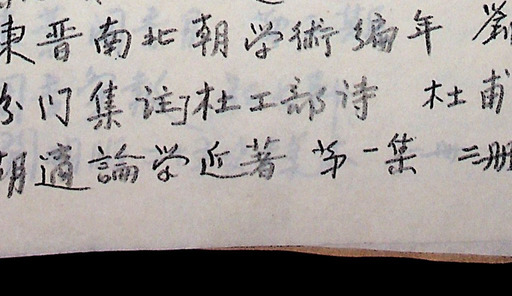 東晋南北朝学術编年 劉
分门集註杜工部诗 杜甫
胡適論学近著 第一集 二册